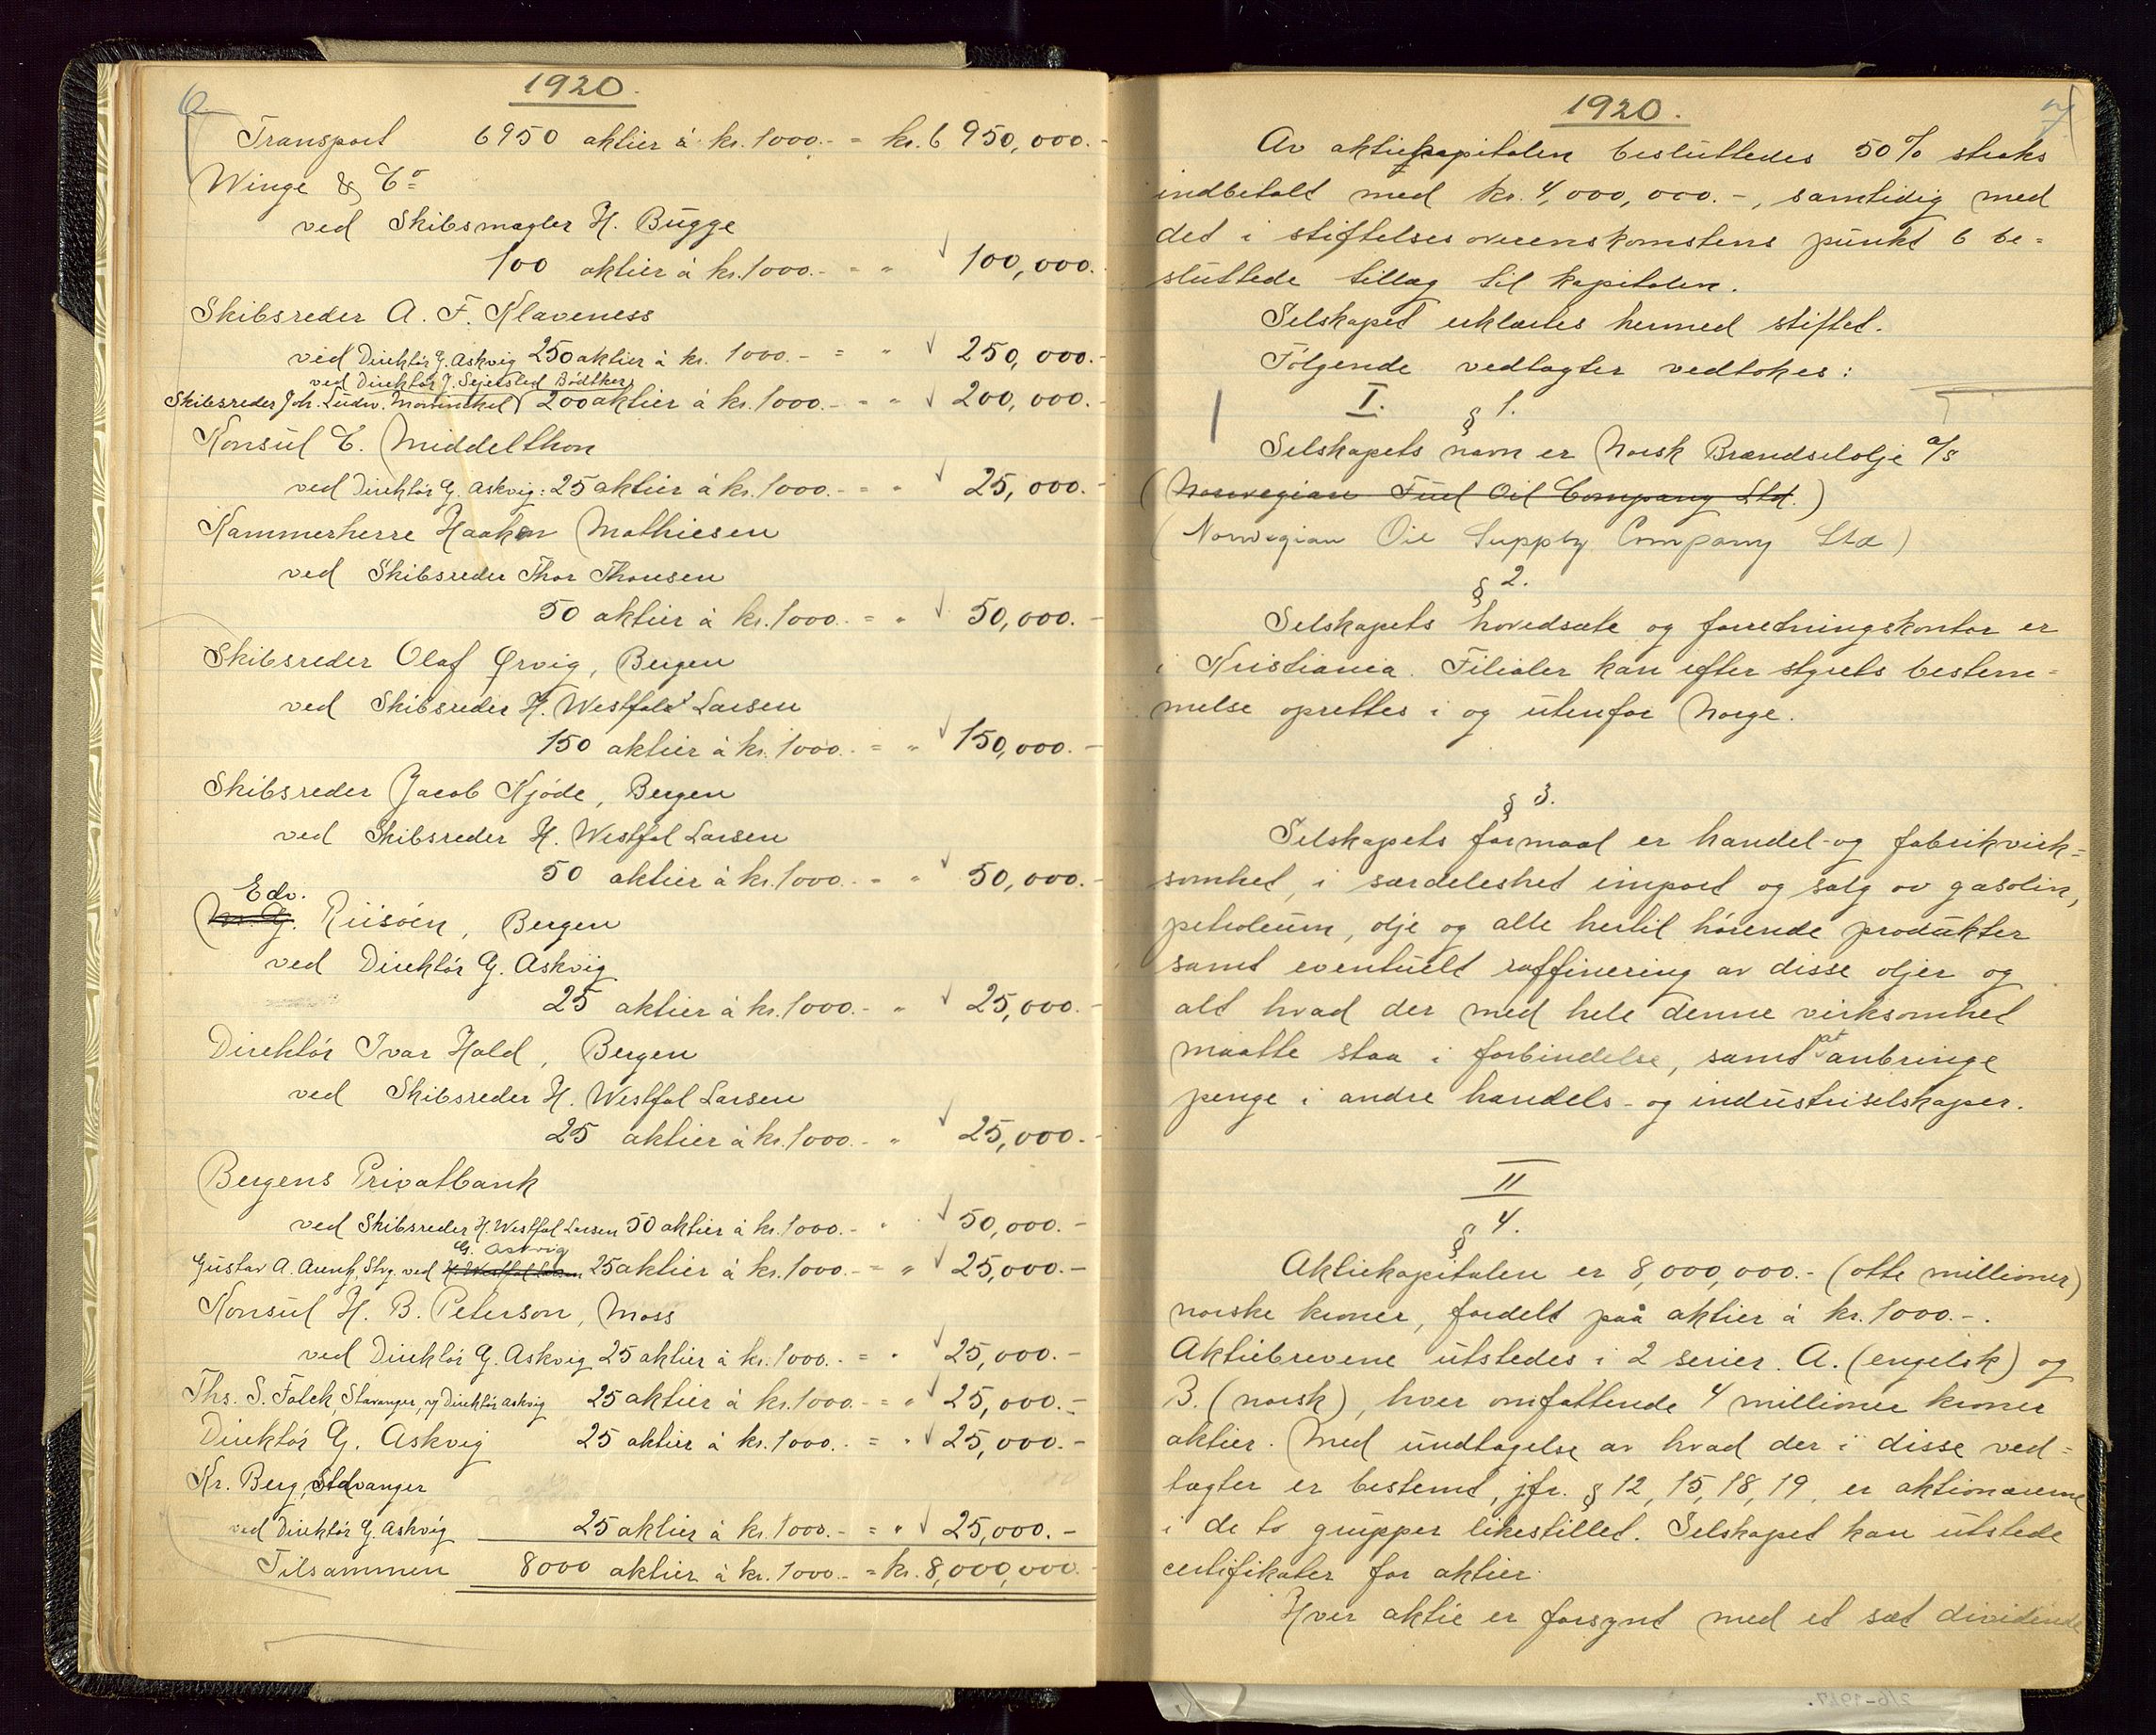 6
1920.
Transport 6950 aktier à kr. 1000.- = kr. 6 950,000.-
Winge & Co
ved Skibsmægler H. Bugge
100 aktier à kr. 1000.- = " √ 100,000.-
Skibsreder A. F. Klaveness
ved Direktör G. Askvig 250 aktier à kr. 1000.- = " √ 250,000.-
ved Direktör J. Sejersted Bödtker
Skibsreder Joh. Ludw. Mowinckel 200 aktier à kr. 1000.- = " √ 200,000.-
Konsul C. Middelthon
ved Direktör G. Askvig: 25 aktier à kr. 1000.- = " √ 25,000.-
Kammerherre Haaken Mathiesen
ved Skibsreder Thor Thoresen
50 aktier à kr. 1000.- = " √ 50,000.-
Skibsreder Olaf Ørvig, Bergen
ved Skibsreder H. Westfal Larsen
150 aktier à kr. 1000.- = " √ 150,000.-
Skibsreder Jacob Kjöde, Bergen
ved Skibsreder H. Westfal Larsen
50 aktier à kr. 1000.- = " √ 50,000.-
Edv.
M. G. Riisöen, Bergen
ved Direktör G. Askvig
25 aktier à kr. 1000.- " √ 25,000.-
Direktör Ivar Hald, Bergen
ved Skibsreder H. Westfal Larsen
25 aktier à kr. 1000.- " √ 25,000.-
Bergens Privatbank
ved Skibsreder H. Westfal Larsen 50 aktier à kr. 1000.- " √ 50,000.-
G. Askvig
Gustav A. Stvg. ved H. Westfal Larsen 25 aktier à kr. 1000.- = " √ 25,000.-
Konsul H. B. Peterson, Moss
ved Direktör G. Askvig 25 aktier à kr. 1000.- = " √ 25,000.-
Ths. S. Falck, Stavanger, v/ Direktör Askvig 25 aktier à kr. 1000.- = " √ 25,000.-
Direktör G. Askvig 25 aktier à kr. 1000.- = " √ 25,000.-
Kr. Berg, Stavanger
ved Direktör G. Askvig 25 aktier à kr. 1000.- = " √ 25,000.-
Tilsammen 8000 aktier à kr. 1000.- = kr. 8,000,000.-
7
1920.
Av aktiekapitalen besluttedes 50% straks
indbetalt med kr. 4,000,000.-, samtidig med
det i stiftelsesoverenskomstens punkt 6 be=
sluttede tillæg til kapitalen.
Selskapet erklærtes hermed stiftet.
Følgende vedtagter vedtokes:
I. § 1.
Selskapets navn er Norsk Brændselolje a/s
(Norwegian Fuel Oil Company Ltd.)
(Norwegian Oil Supply Company Ltd)
§ 2.
Selskapets hovedsæte og forretningskontor er
i Kristiania. Filialer kan efter styrets bestem=
melse oprettes i og utenfor Norge.
§ 3.
Selskapets formaal er handel- og fabrikvirk=
somhet, i særdeleshet import og salg av gasolin,
petroleum, olje og alle hertil hörende produkter
samt eventuelt raffinering av disse oljer og
alt hvad der med hele denne virksomhet
maatte staa i forbindelse, samt at anbringe
penge i andre handels- og industriselskaper.
II
§ 4.
Aktiekapitalen er 8,000,000.- (otte millioner)
norske kroner, fordelt paa aktier à kr. 1000.-.
Aktiebrevene utstedes i 2 serier. A. (engelsk) og
B. (norsk), hver omfattende 4 millioner kroner
aktier. Med undtagelse av hvad der i disse ved=
tægter er bestemt, jfr. § 12, 15, 18, 19, er aktionærerne
i de to grupper likestillet. Selskapet kan utstede
certifikater for aktier.
Hver aktie er forsynt med et sæt dividende
2/6-1927.